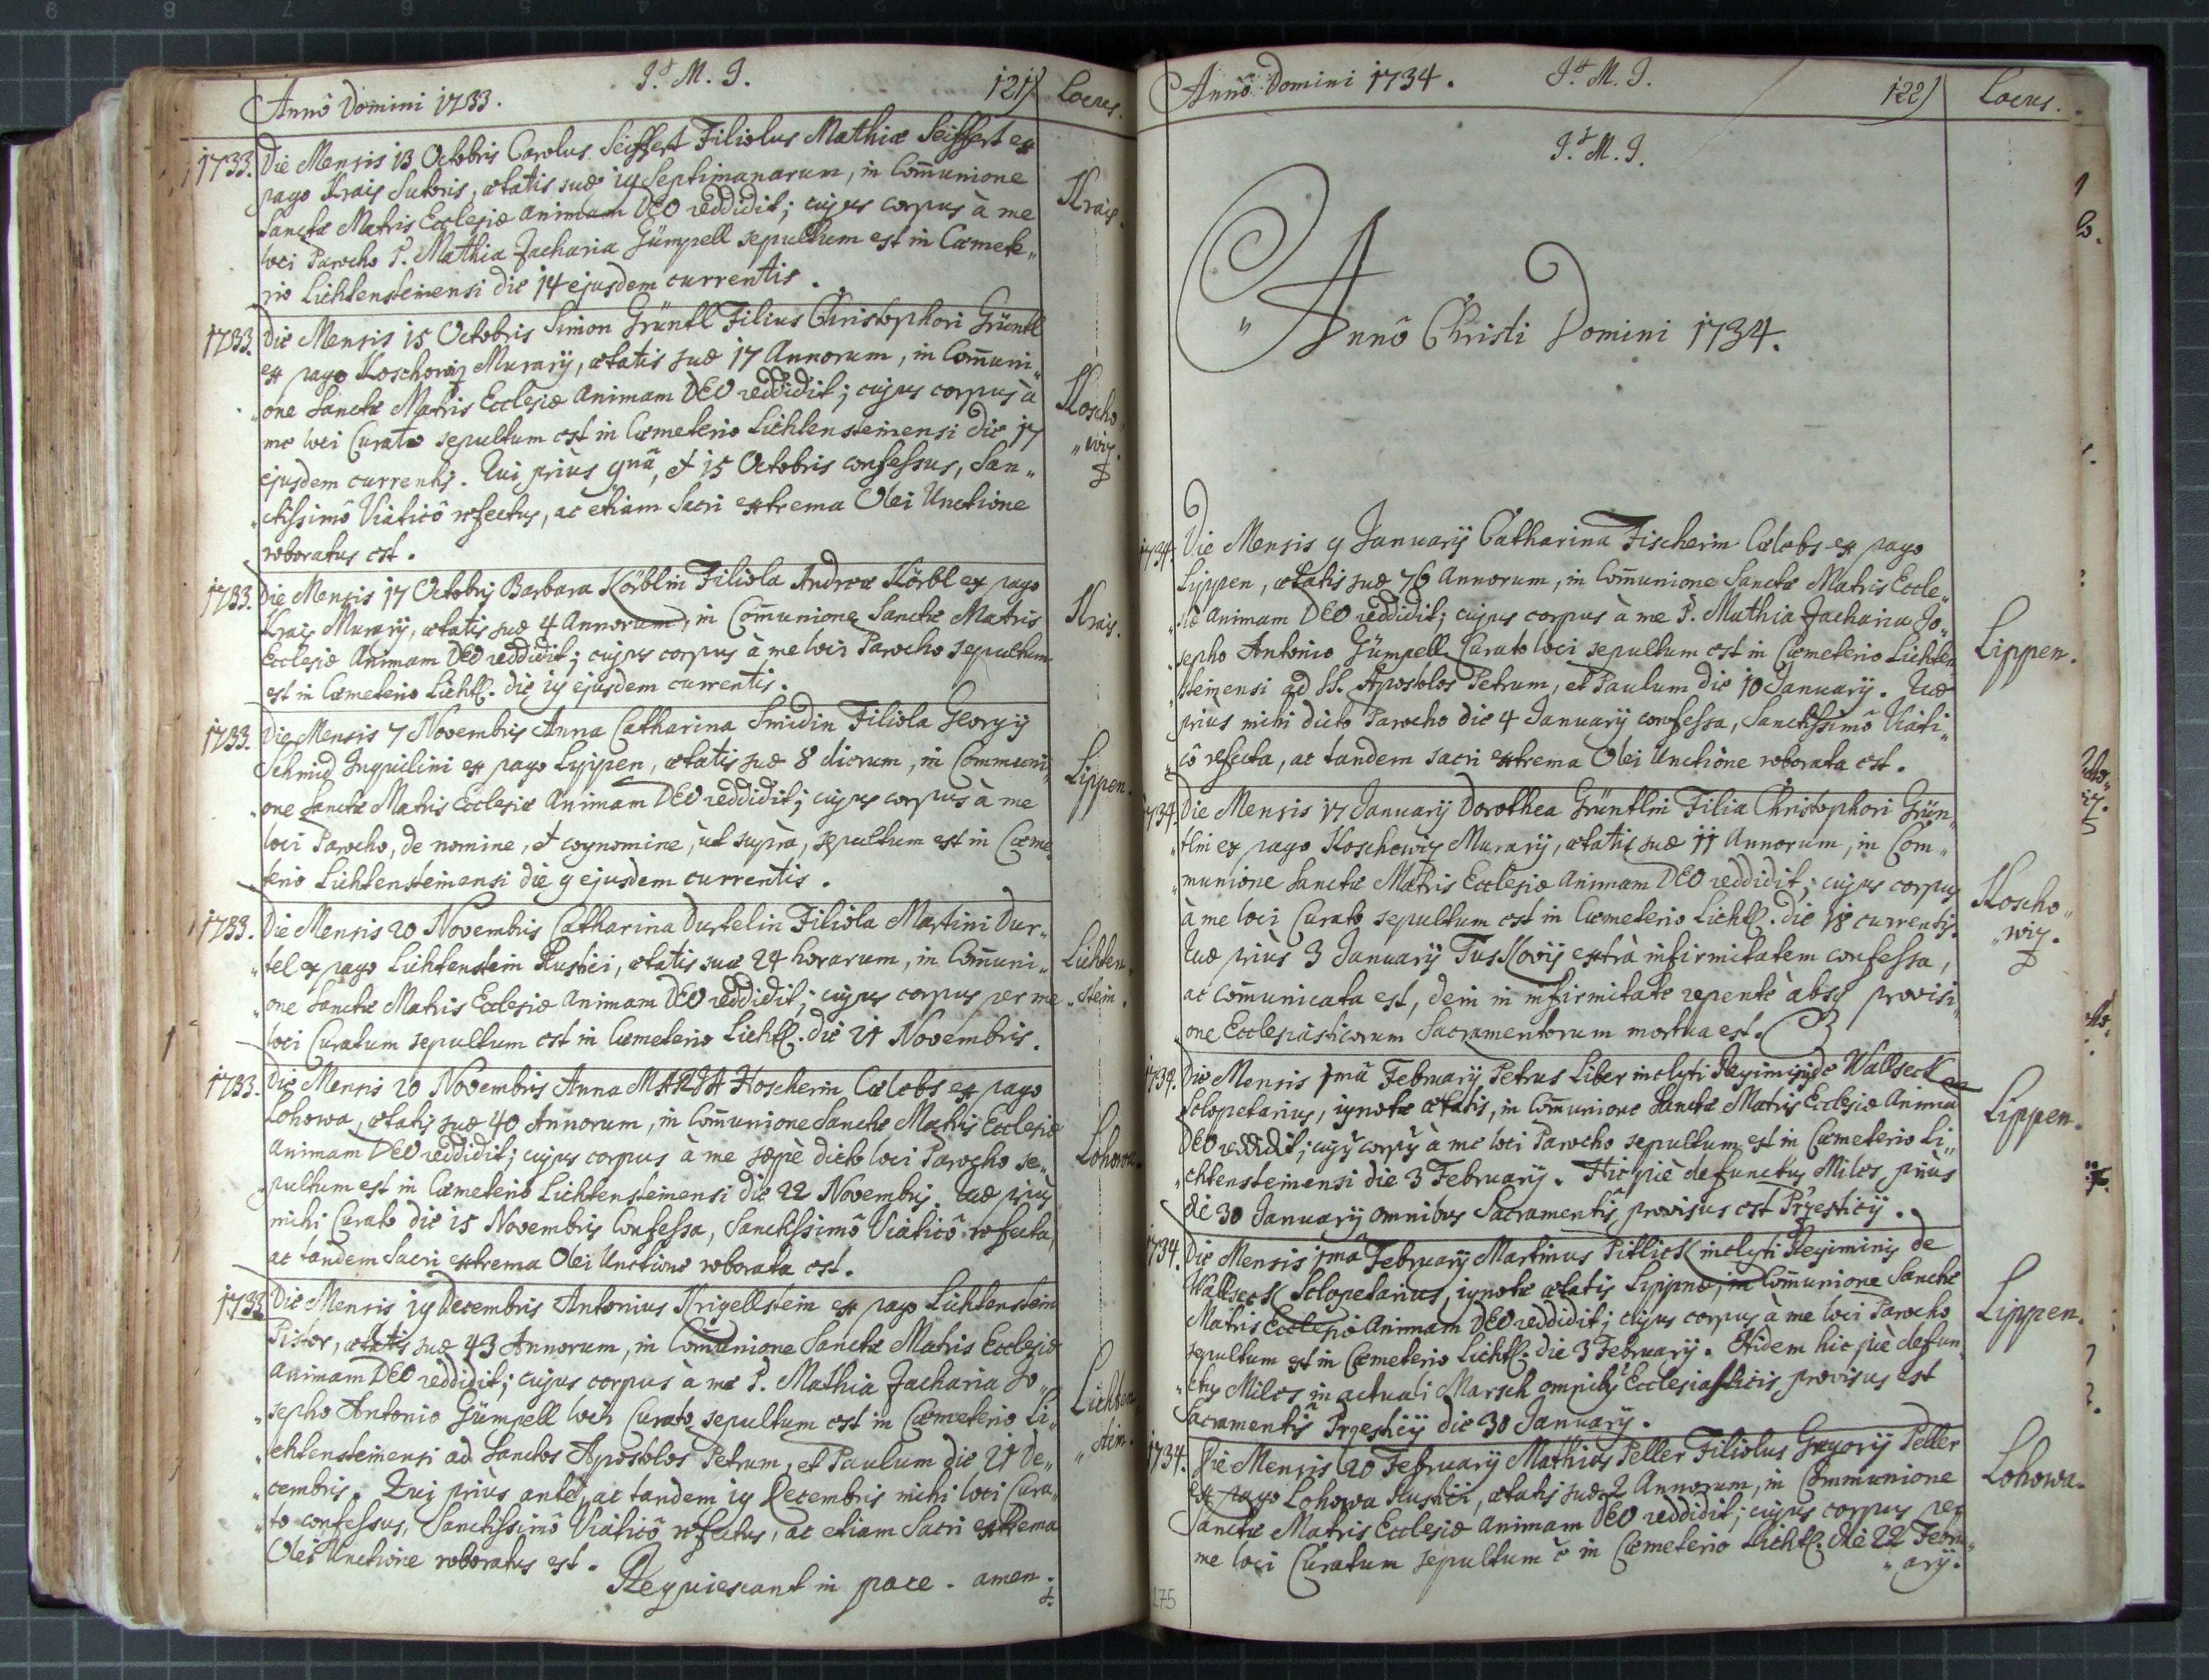 Annô Domini 1733. J. M. J. 121 Locus.
1733. Die Mensis 13 Octobris Carolus Seiffert Filiolus Mathiæ Seiffert ex
pago Krais Sutoris, ætatis suæ 19 Septimanarum, in Com̄unione
Sanctæ Matris Ecclesiæ animam DEO reddidit; cujus corpus à me Krais.
loci Parocho P. Mathia Zacharia Gümpell sepultum est in Cœmete„
rio Lichtensteinensi die 14 ejusdem currentis.
1733. Die Mensis 15 Octobris Simon Grüntl Filius Christophori Grüntl
ex pago Koschowiz Murarÿ, ætatis suæ 17 Annorum, in Com̄uni„
one Sanctæ Matris Ecclesiæ Animam DEO reddidit; cujus corpus à Koscho„
me loci Curato sepultum est in Cœmeterio Lichtensteinensi die 17 „wiz.
ejusdem currentis. Qui priùs 9nâ, et 15 Octobris confessus, San„
„ctissimô Viaticô refectus, ac etiam Sacri extrema Olei Unctione
roboratus est.
1733. Die Mensis 17 Octobris Barbara Körblin Filiola Andreæ Körbl ex pago
Krais Murarÿ, ætatis suæ 4 Annorum, in Com̄unione Sanctæ Matris Krais.
Ecclesiæ Animam DEO reddidit; cujus corpus à me loci Parocho sepultum
est in Cœmeterio Lichtl. die 19 ejusdem currentis.
1733. Die Mensis 7 Novembris Anna Catharina Smidin Filiola Georgÿ
Schmid Inquilini ex pago Lippen, ætatis suæ 8 dierum, in Communi„ Lippen.
„one Sanctæ Matris Ecclesiæ Animam DEO reddidit; cujus corpus à me
loci Parocho, de nomine, et cognomine, ùt suprà, sepultum est in Cœme„
„terio Lichtensteinensi die 9 ejusdem currentis.
1733. Die Mensis 20 Novembris Catharina Durtelin Filiola Martini Dur„
„tel ex pago Lichtenstein Rustici, ætatis suæ 24 horarum, in Com̄uni„ Lichten„
„one Sanctæ Matris Ecclesiæ Animam DEO reddidit; cujus corpus per me „stein.
loci Curatum sepultum est in Cœmeterio Lichtl. die 21 Novembris.
1733. Die Mensis 20 Novembris Anna MARIA Hoscherin Cælebs ex pago
Lohowa, ætatis suæ 40 Annorum, in Com̄unione Sanctæ Matris Ecclesiæ
Animam DEO reddidit; cujus corpus à me sæpè dicto loci Parocho se„ Lohowa.
„pultum est in Cœmeterio Lichtensteinensi die 22 Novembris. Quæ priùs
mihi Curato die 15 Novembris Confessa, Sanctissimô Viaticô refecta,
ac tandem Sacri extrema Olei Unctione roborata est.
1733. Die Mensis 19 Decembris Antonius Krigellstein ex pago Lichtenstein
Pistor, ætatis suæ 43 Annorum, in Com̄unione Sanctæ Matris Ecclesiæ
Animam DEO reddidit; cujus corpus à me P. Mathia Zacharia Jo„ Lichten„
„sepho Antonio Gümpell loci Curato sepultum est in Cœmeterio Li„ „stein.
„chtensteinensi ad Sanctos Apostolos Petrum, et Paulum die 21 De„
„cembris. Qui priùs antè, ac tandem 19 Decembris mihi loci Cura„
„to confessus, Sanctissimô Viaticô refectus, ac etiam Sacri extrema
Olei Unctione roboratus est.
Requiescant in pace. amen.
Annô Domini 1734. J. M. J. 122 Locus.
J. M. J.
Annô Christi Domini 1734.
1734. Die Mensis 9 Januarÿ Catharina Fischerin Cælebs ex pago
Lippen, ætatis suæ 76 Annorum, in Com̄unione Sanctæ Matris Eccle„
„siæ Animam DEO reddidit; cujus corpus à me P. Mathia Zacharia Jo„ Lippen.
„sepho Antonio Gümpell Curato loci sepultum est in Cœmeterio Lichten„
„steinensi ad SS. Apostolos Petrum, et Paulum die 10 Januarÿ. Quæ
priùs mihi dicto Parocho die 4 Januarÿ confessa, Sanctissimô Viati„
„cô refecta, ac tandem sacri extrema Olei Unctione roborata est.
1734. Die Mensis 17 Januarÿ Dorothea Grüntlin Filia Christophori Grün„
„tlin ex pago Koschowiz Murarÿ, ætatis suæ 11 Annorum, in Com„
„munione Sanctæ Matris Ecclesiæ Animam DEO reddidit; cujus corpus Koscho„
à me loci Curato sepultum est in Cœmeterio Lichtl. die 18 currentis. „wiz.
Quæ priùs 3 Januarÿ Tuskovÿ extrà infirmitatem confessa,
ac com̄unicata est, dein in infirmitate repentè absq provisi„
„one Ecclesiasticorum Sacramentorum mortua est.
1734. Die Mensis 1mâ Februarÿ Petrus Liber inclyti Regiminis de Wallseck
Sclopetarius, ignotæ ætatis, in Com̄unione Sanctæ Matris Ecclesiæ Animā Lippen.
DEO reddidit; cujus corpus à me loci Parocho sepultum est in Cœmeterio Li„
„chtensteinensi die 3 Februarÿ. Hic piè defunctus Miles priùs
die 30 Januarÿ omnibus Sacramentis provisus est Przesticÿ.
1734. Die Mensis 1mâ Februarÿ Martinus Pitlick inclyti Regiminis de
Wallseck Sclopetarius, ignotæ ætatis Lippnæ, in Com̄unione Sanctæ Lippen.
Matris Ecclesiæ Animam DEO reddidit; cujus corpus à me loci Parocho
sepultum est in Cœmeterio Lichtl. die 3 Februarÿ. Itidem hic piè defun„
„ctus Miles in actuali Marsch omnibus Ecclesiasticis provisus est
Sacramentis Przesticÿ die 30 Januarÿ.
1734. Die Mensis 20 Februarÿ Mathias Peller Filiolus Gregorÿ Peller
ex pago Lohowa Rustici, ætatis suæ 2 Annorum, in Communione Lohowa.
Sanctæ Matris Ecclesiæ Animam DEO reddidit; cujus corpus per
me loci Curatum sepultum ē in Cœmeterio Lichtl. die 22 Febru„
„arÿ.
275